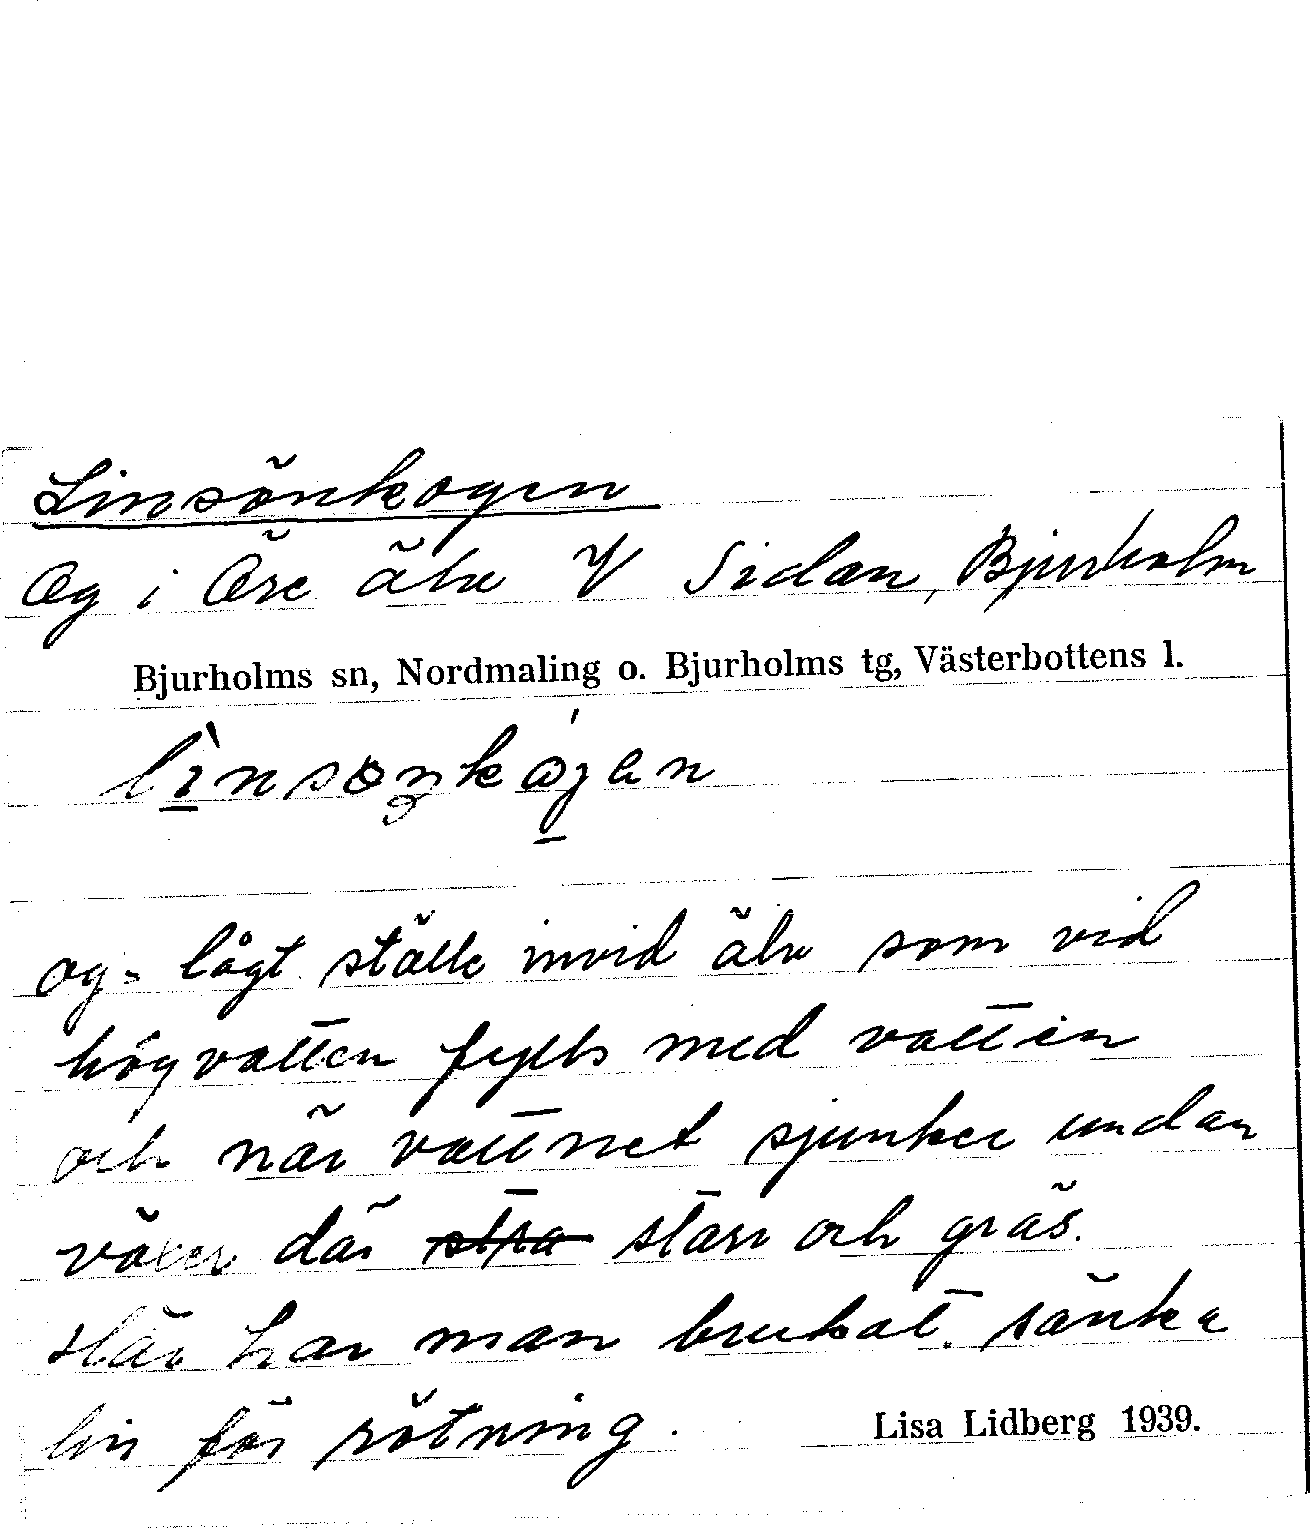 Linsönkogen
Og i Öre älv V Sidan, Bjurholm
Bjurholms sn, Nordmaling o. Bjurholms tg, Västerbottens l.
og = lågt ställe invid älv som vid
högvatten fylls med vatten
och när vattnet sjunker undan
växer där stra starr och gräs.
Här har man brukat sänka
lin för rötning.
Lisa Lidberg 1939.